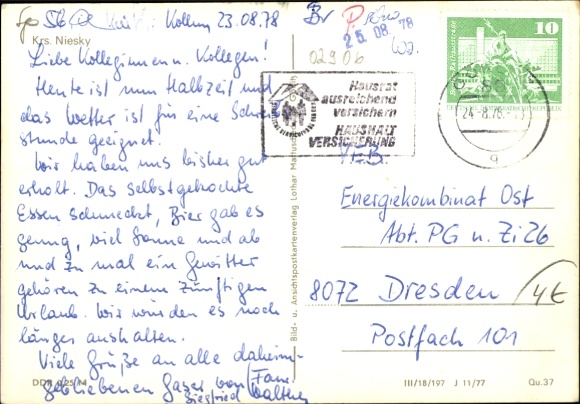 Kollm, 23.08.78
Krs. Niesky
Liebe Kolleginnen u. Kollegen!
Heute ist nun Halbzeit und
das Wetter ist für eine Schreib
stunde geeignet.
Wir haben uns bisher gut
erholt. Das selbstgekochte
Essen schmeckt, Bier gab es
genug, viel Sonne und ab
und zu mal ein Gewitter
gehören zu einem zünftigen
Urlaub. Wir würden es noch
länger aushalten.
Viele Grüße an alle daheim-
gebliebenen von Fam.
Siegfried Walther
Bild- u. Ansichtspostkartenverlag Lothar
25.08.78
02906
Hausrat
ausreichend
versichern
HAUSHALT
VERSICHERUNG
10
24.-8.78
VEB.
Energiekombinat Ost
Abt. PG u. Zi 26
8072 Dresden
Postfach 101
4€
DDR
III/18/197 J 11/77
Qu.37